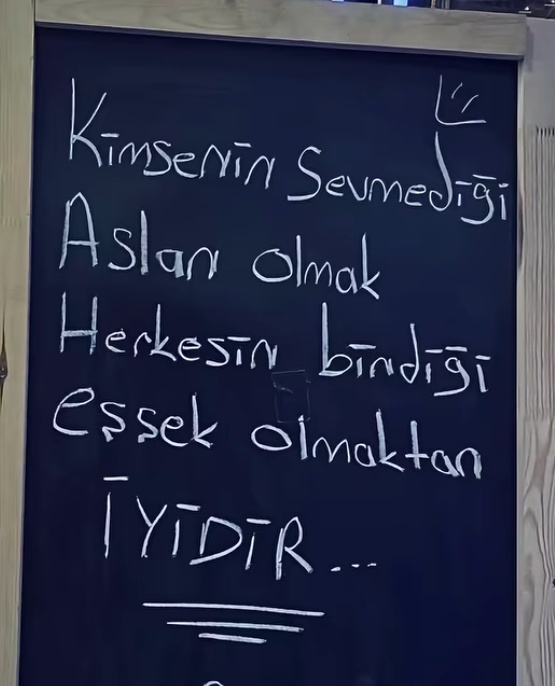 Kimsenin Sevmediği
Aslan olmak
Herkesin bindiği
eşşek olmaktan
İYİDİR...